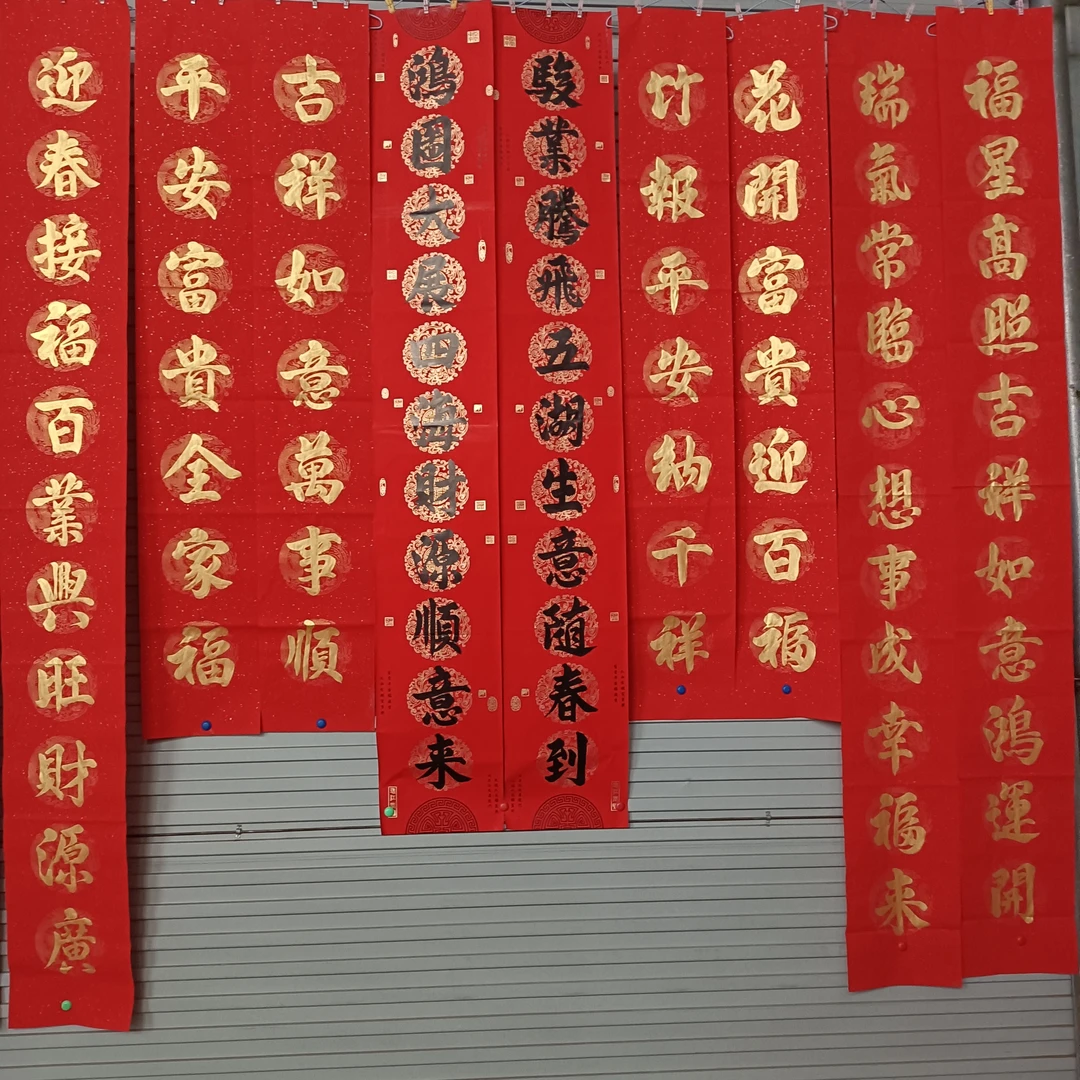 福星髙照吉祥如意鴻運開
瑞氣常臨心想事成幸福来
花開富貴迎百福
竹報平安納千祥
駿業騰飛五湖生意随春到
鴻圖大展四海財源順意来
吉祥如意萬事順
平安富貴全家福
迎春接福百業興旺財源廣